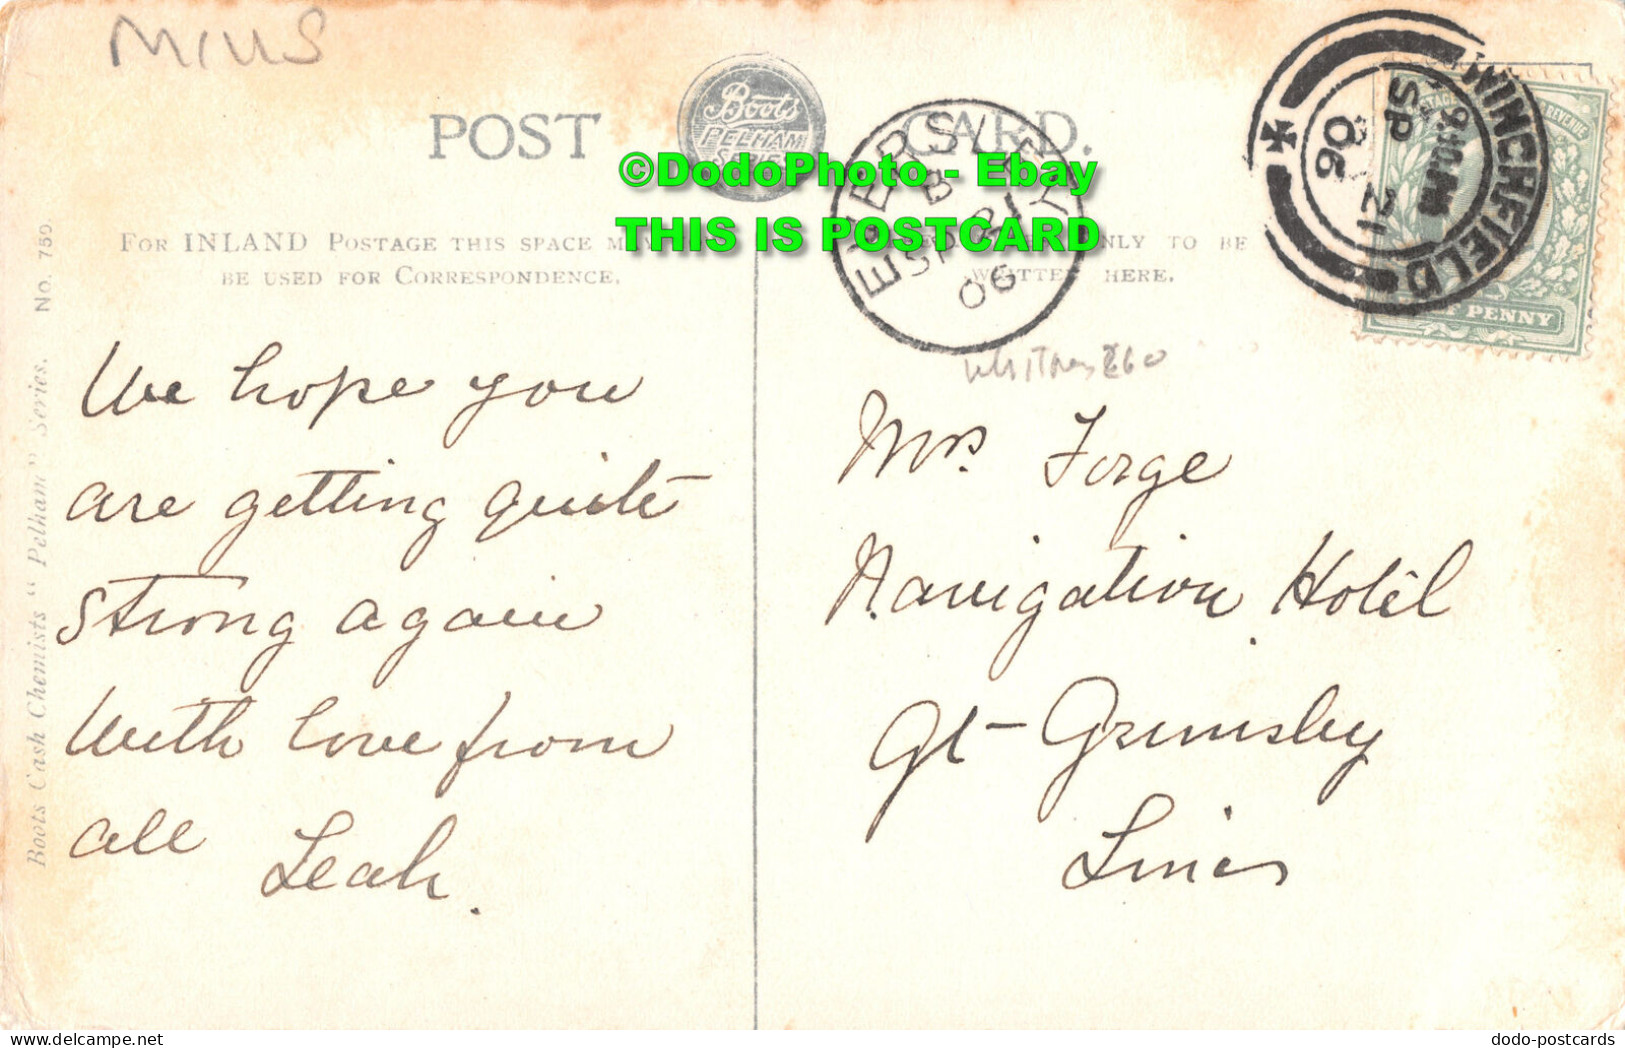 MILLS
POST CARD.
Boots
PELHAM
SERIES
©DodoPhoto - Ebay
THIS IS POSTCARD
EVERSLEY
B
SP 21
06
WINCHFIELD
SP 21
06
REVENUE
PENNY
FOR INLAND POSTAGE THIS SPACE
BE USED FOR CORRESPONDENCE.
ONLY TO BE
WRITTEN HERE.
Boots Cash Chemists "Pelham" Series. No. 759.
We hope you
are getting quite
strong again
With love from
all Leah.
Mrs. Forge
Navigation Hotel
Gt Grimsby
Lincs
dodo-postcards